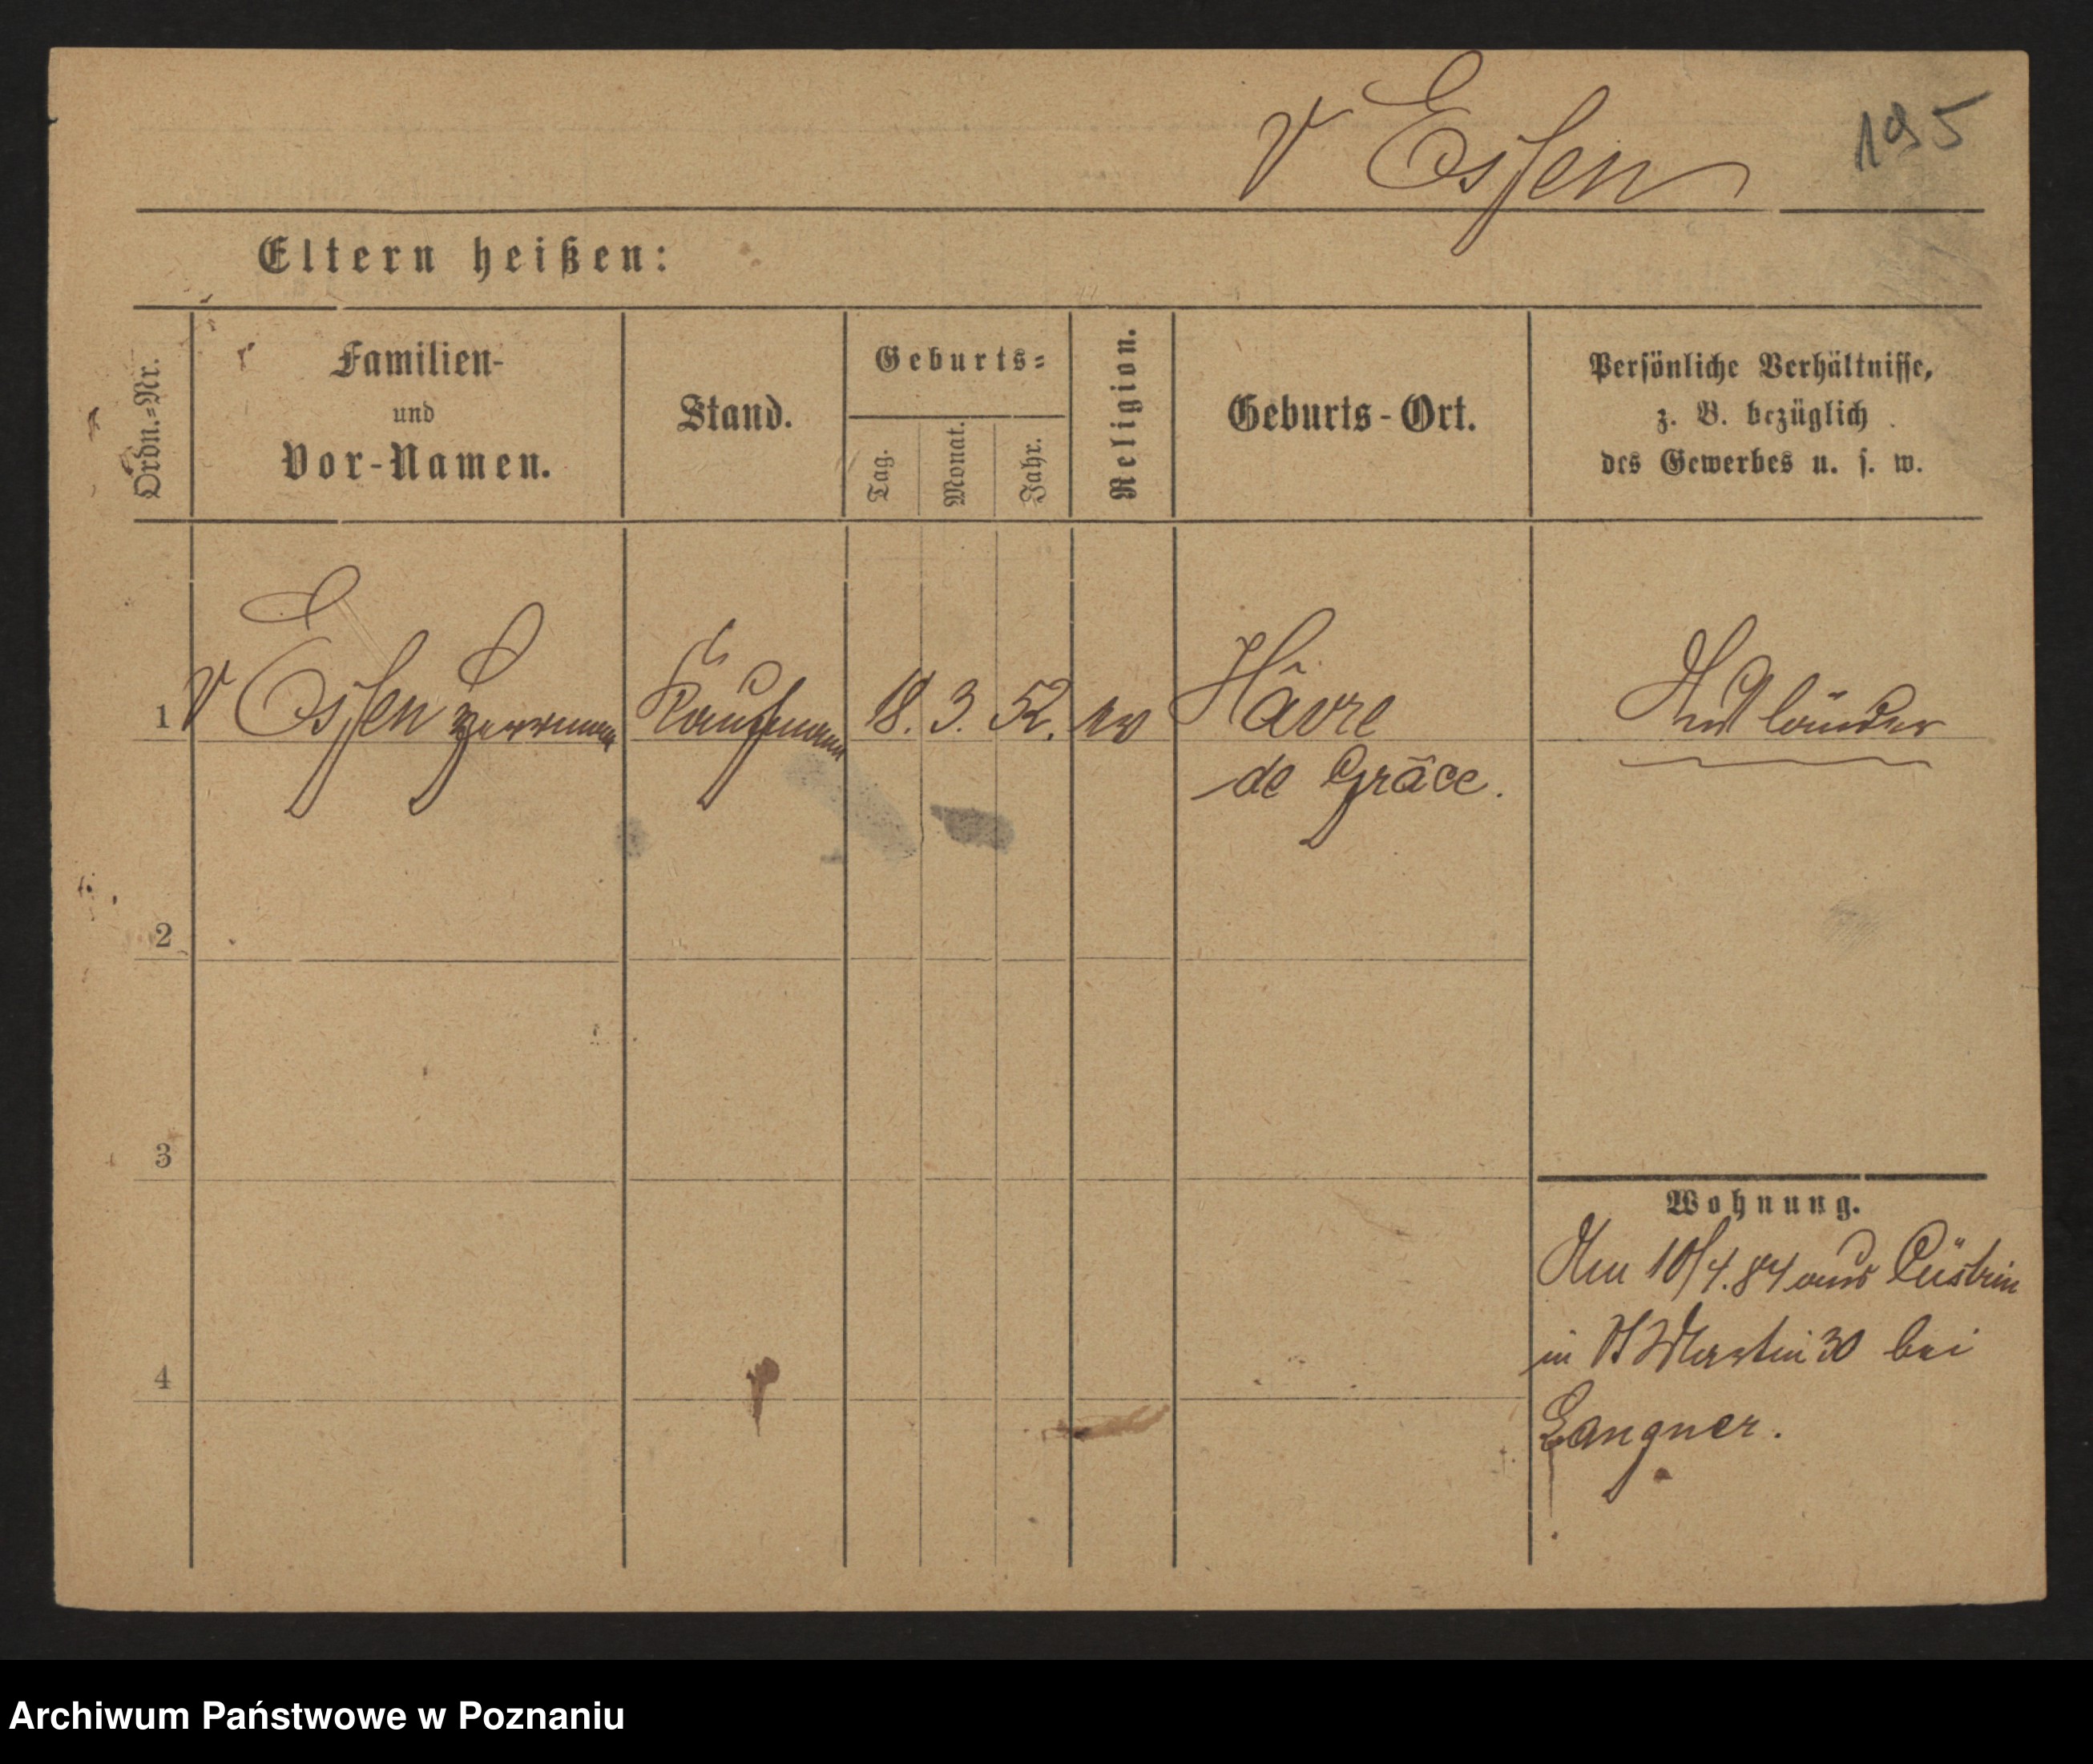 v Essen
195
Eltern heißen:
Ordn.=Nr.
Familien-
und
Vor-Namen.
Stand.
Geburts=
Tag.
Monat.
Jahr.
Religion.
Geburts-Ort.
Persönliche Verhältnisse,
z. B. bezüglich
des Gewerbes u. s. w.
1 v Essen Hermann Kaufmann 18. 3. 52. ev Hâvre Ausländer
de Grâce.
2
3
4
Wohnung.
Am 10/4. 84 aus Cüstrin
in St Martin 30 bei
Langner.
Archiwum Państwowe w Poznaniu